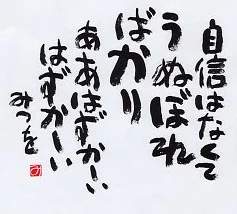 自信はなくて
うぬぼれ
ばかり
ああはずかーい
はずかーい
みつを